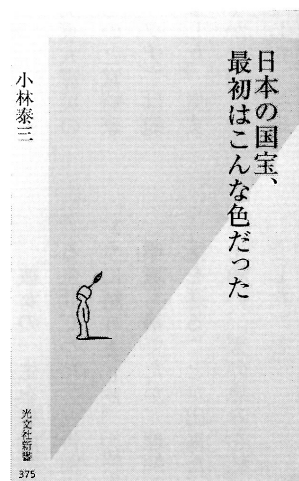 日本の国宝、
最初はこんな色だった
小林泰三
光文社新書
375